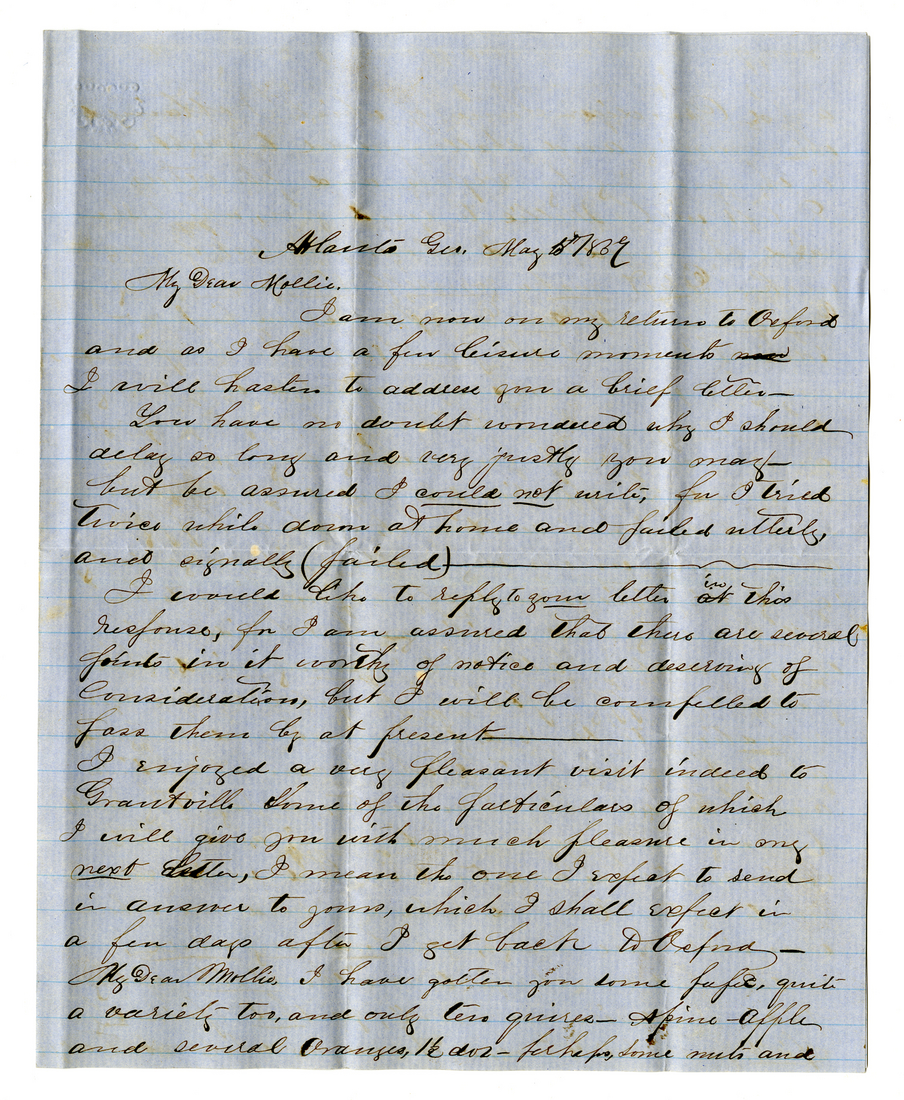 Atlanta Geo. May 5th/1867
My Dear Mollie.
I am now on my return to Oxford
and as I have a few leisure moments
I will hasten to address you a brief letter—
You have no doubt wondered why I should
delay so long and very justly you may—
but be assured I could not write, for I tried
twice while down at home and failed utterly,
and signally (failed)
I would like to reply to your letter in this
response, for I am assured that there are several
points in it worthy of notice and deserving of
Consideration, but I will be compelled to
pass them by at present
I enjoyed a very pleasant visit indeed to
Grantville some of the particulars of which
I will give you with much pleasure in my
next letter, I mean the one I expect to send
in answer to yours, which I shall expect in
a few days after I get back to Oxford—
My Dear Mollie, I have gotten you some paper, quite
a variety too, and only ten quires— pine-apple
and several Oranges, 1½ doz— perhaps, some nuts and